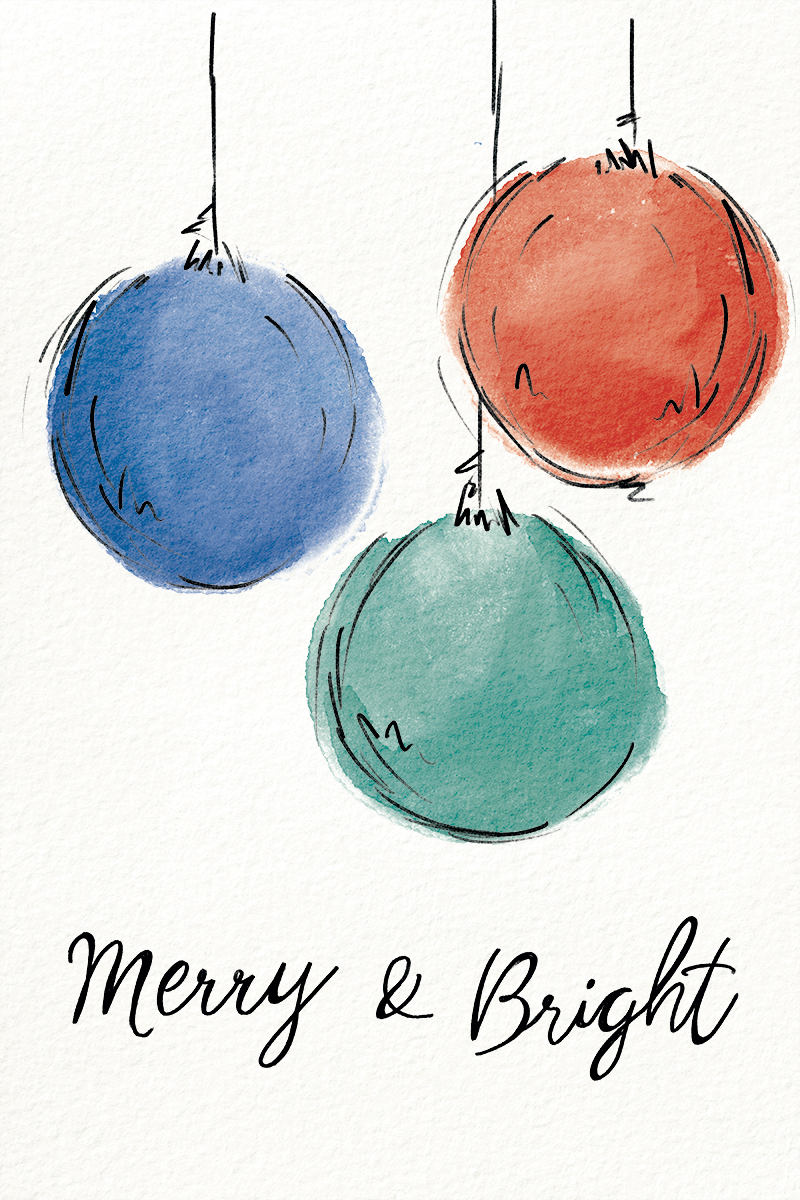 Merry & Bright